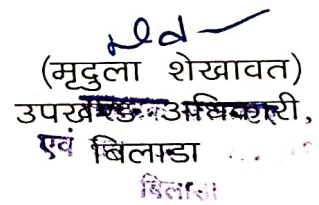 (मृदुला शेखावत)
उपखण्ड अधिकारी,
एवं बिलाडा
बिलाडा